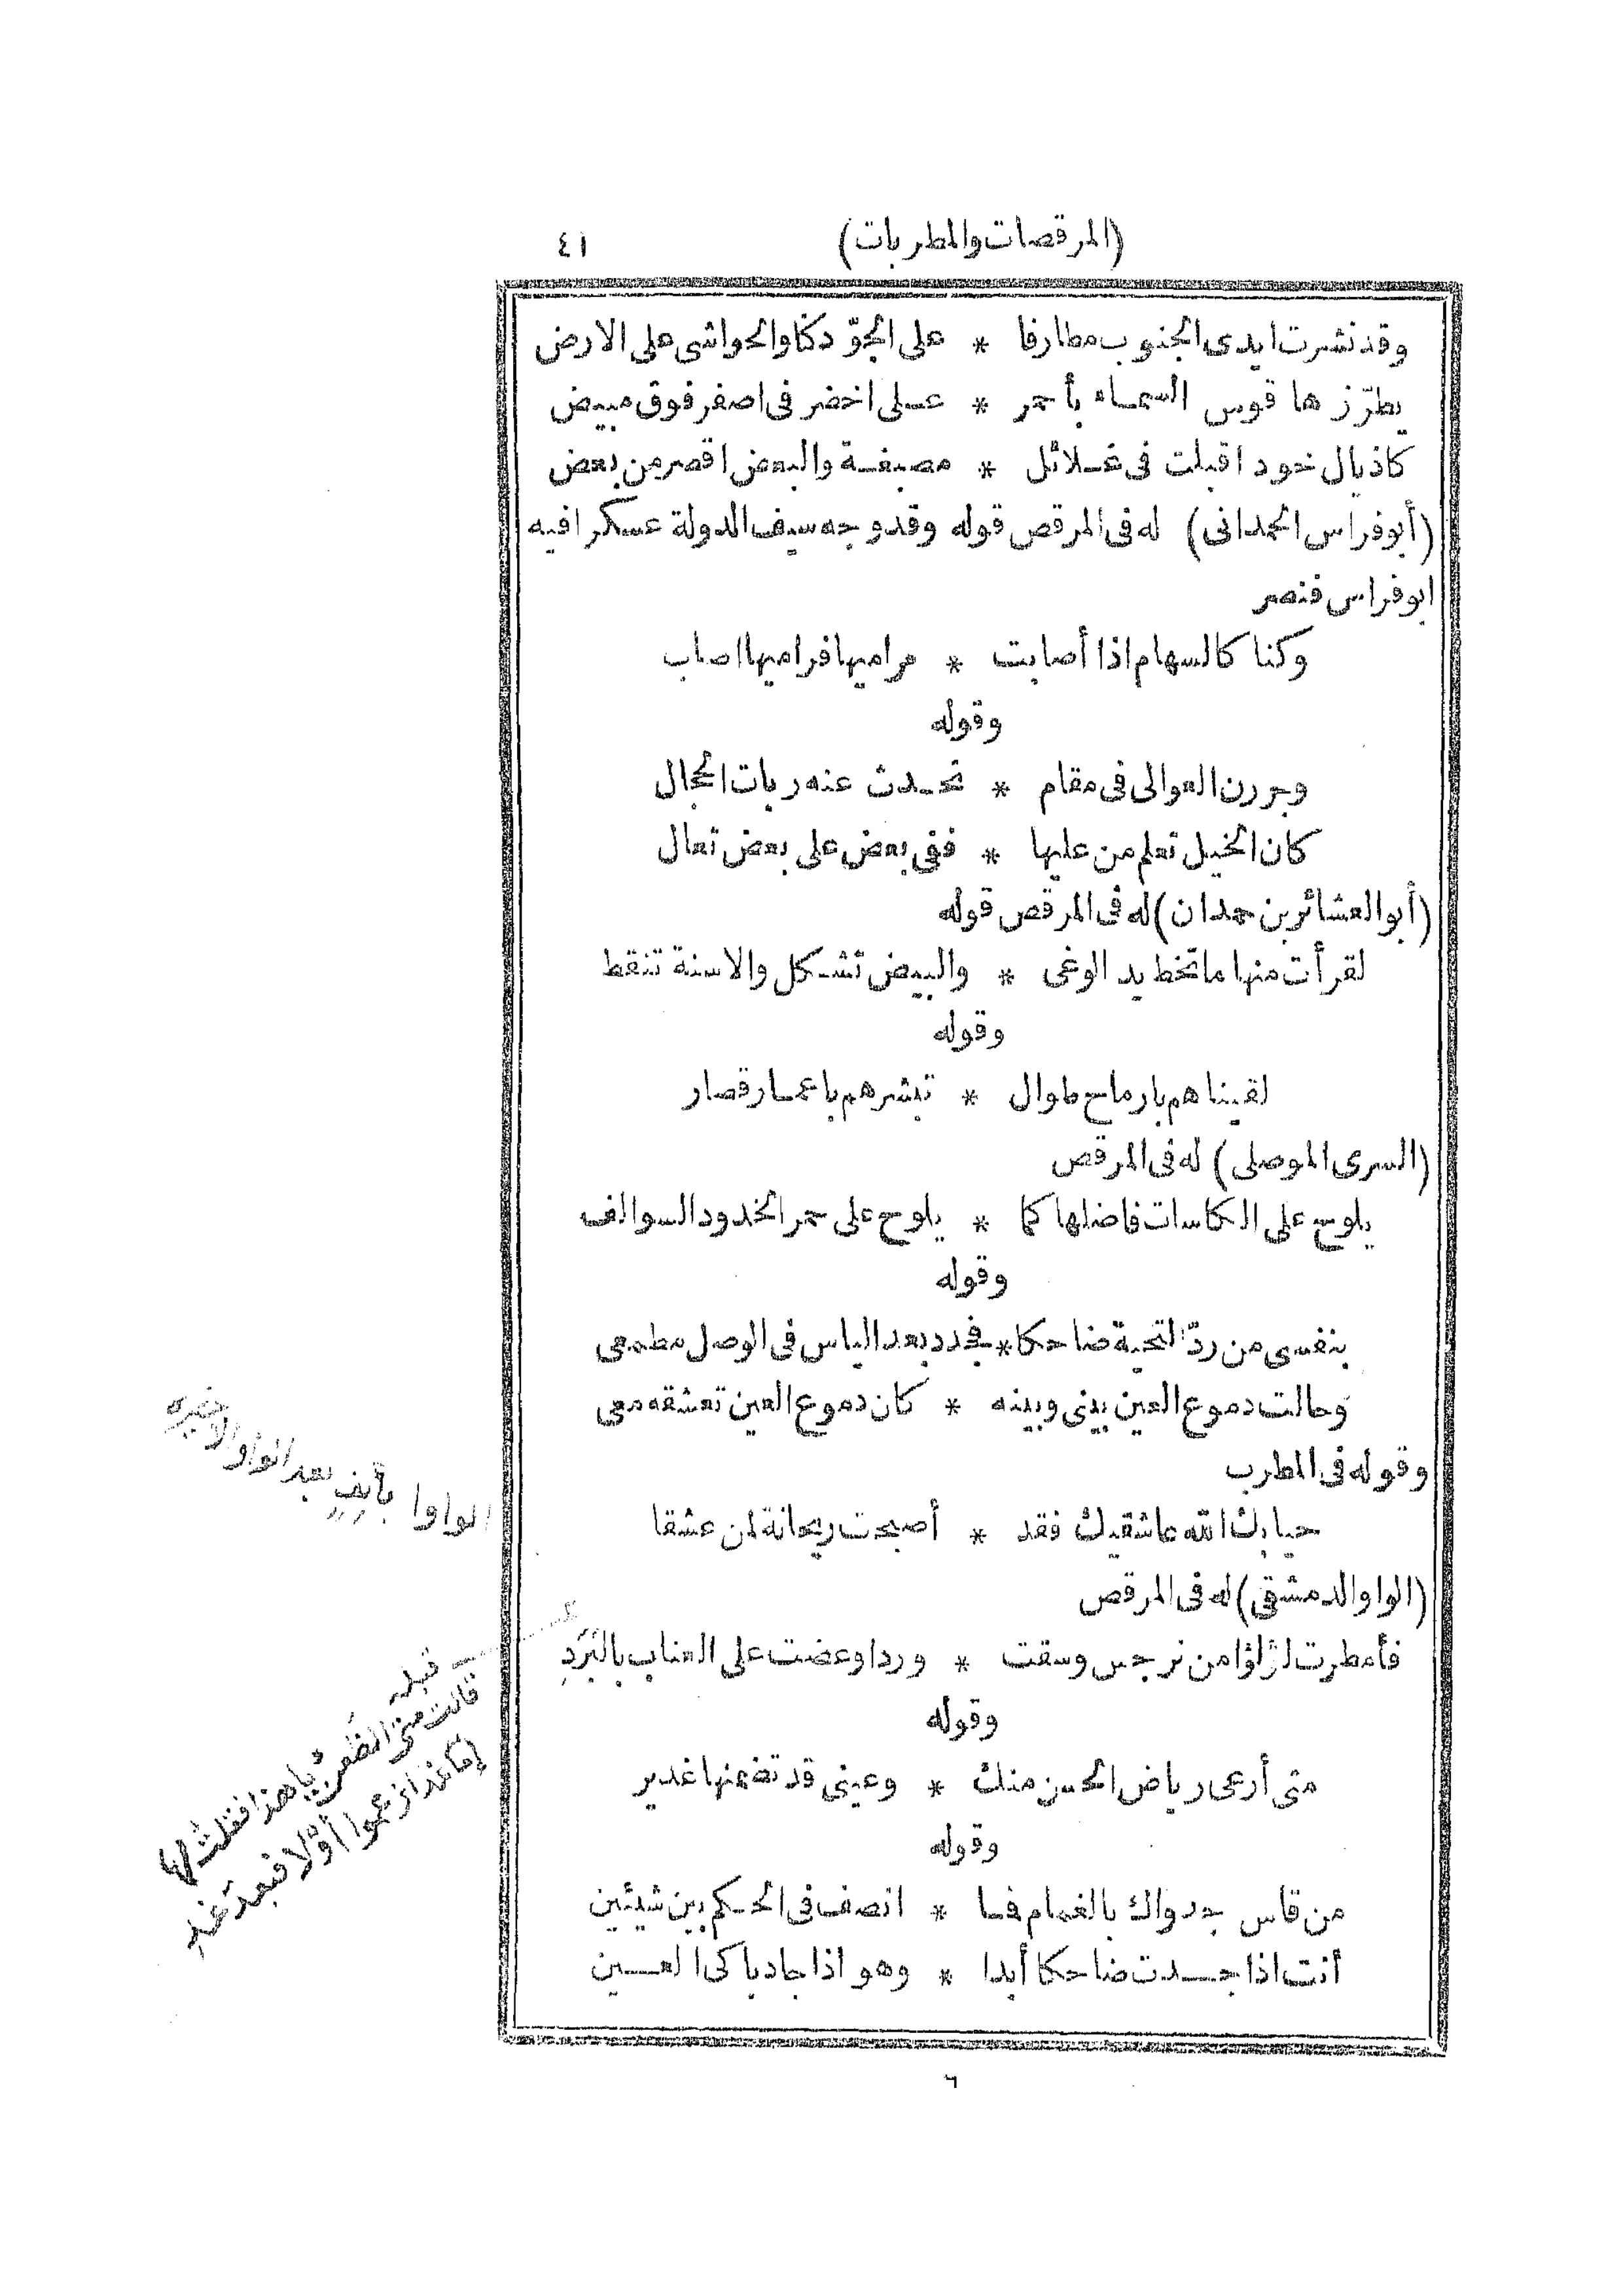 (المرقصات والمطربات) ٤١
وقد نشرت ايدى الجنوب مطارفا * على الجوّ دكنا والحواشى على الارض
يطرّزها قوس السماء بأحمر * على اخضر فى اصفر فوق مبيض
كاذيال خود اقبلت فى غلائل * مصبغة والبعض اقصر من بعض
(أبو فراس الحمدانى) له فى المرقص قوله وقد وجه سيف الدولة عسكرا فيه
ابو فراس فنصر
وكنا كالسهام اذا أصابت * مراميها فراميها اصاب
وقوله
وجررن العوالى فى مقام * تحدث عنه ربات الحجال
كان الخيل تعلم من عليها * ففى بعض على بعض تعال
(أبو العشائر بن حمدان) له فى المرقص قوله
لقرأت منها ما تخط يد الوغى * والبيض تشكل والاسنة تنقط
وقوله
لقيناهم بارماح طوال * تبشرهم باعمار قصار
(السرى الموصلى) له فى المرقص
يلوح على الكاسات فاضلها كما * يلوح على حمر الخدود السوالف
وقوله
بنفسى من ردّ التحية ضاحكا * فجدد بعد الياس فى الوصل مطمعى
وحالت دموع العين بينى وبينه * كان دموع العين تعشقه معى
وقوله فى المطرب
حيا بك الله عاشقيك فقد * أصبحت ريحانة لمن عشقا
(الواو الدمشقى) له فى المرقص
فأمطرت لؤلؤا من نرجس وسقت * وردا وعضت على العناب بالبَرَدِ
وقوله
متى أرعى رياض الحسن منك * وعينى قد تضمنها غدير
وقوله
من قاس جدواك بالغمام فما * انصف فى الحكم بين شيئين
أنت اذا جدت ضاحكا أبدا * وهو اذا جاد باكى العين
٦
الواوا بألِفٍ بعد الواو الاخيره
قبله
قالت متى الظَعنُ يا هذا فقلتُ لها
إمّا غدا زعموا أوّلا فبعدَ غدِ